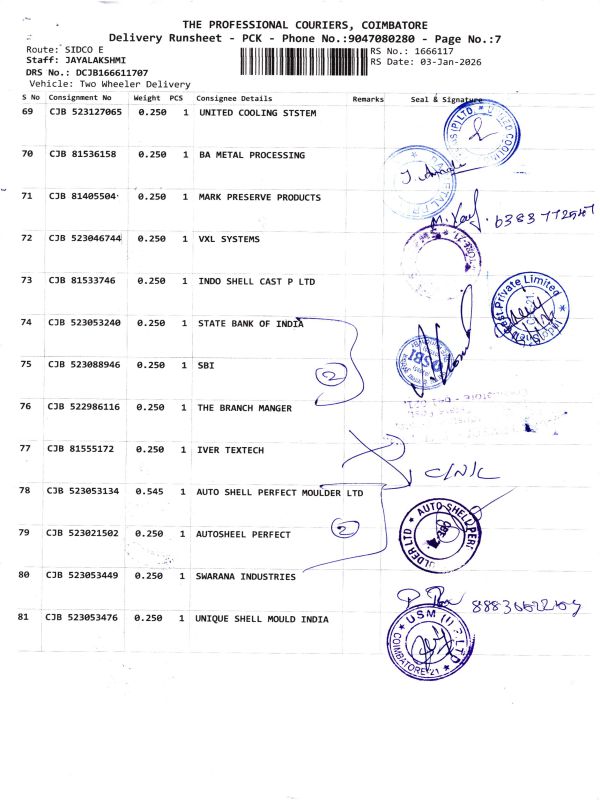 THE PROFESSIONAL COURIERS, COIMBATORE
Delivery Runsheet - PCK - Phone No.:9047080280 - Page No.:7
Route: SIDCO E
RS No.: 1666117
Staff: JAYALAKSHMI
RS Date: 03-Jan-2026
DRS No.: DCJB166611707
Vehicle: Two Wheeler Delivery
S No Consignment No Weight PCS Consignee Details Remarks Seal & Signature
69 CJB 523127065 0.250 1 UNITED COOLING STSTEM
70 CJB 81536158 0.250 1 BA METAL PROCESSING
71 CJB 81405504 0.250 1 MARK PRESERVE PRODUCTS
72 CJB 523046744 0.250 1 VXL SYSTEMS
73 CJB 81533746 0.250 1 INDO SHELL CAST P LTD
74 CJB 523053240 0.250 1 STATE BANK OF INDIA
75 CJB 523088946 0.250 1 SBI
2
SBI
76 CJB 522986116 0.250 1 THE BRANCH MANGER
77 CJB 81555172 0.250 1 IVER TEXTECH
C/N/C
78 CJB 523053134 0.545 1 AUTO SHELL PERFECT MOULDER LTD
AUTO SHELL PERF
ULDER LTD
79 CJB 523021502 0.250 1 AUTOSHEEL PERFECT
2
80 CJB 523053449 0.250 1 SWARANA INDUSTRIES
81 CJB 523053476 0.250 1 UNIQUE SHELL MOULD INDIA
USM (I) P LTD
COIMBATORE-21